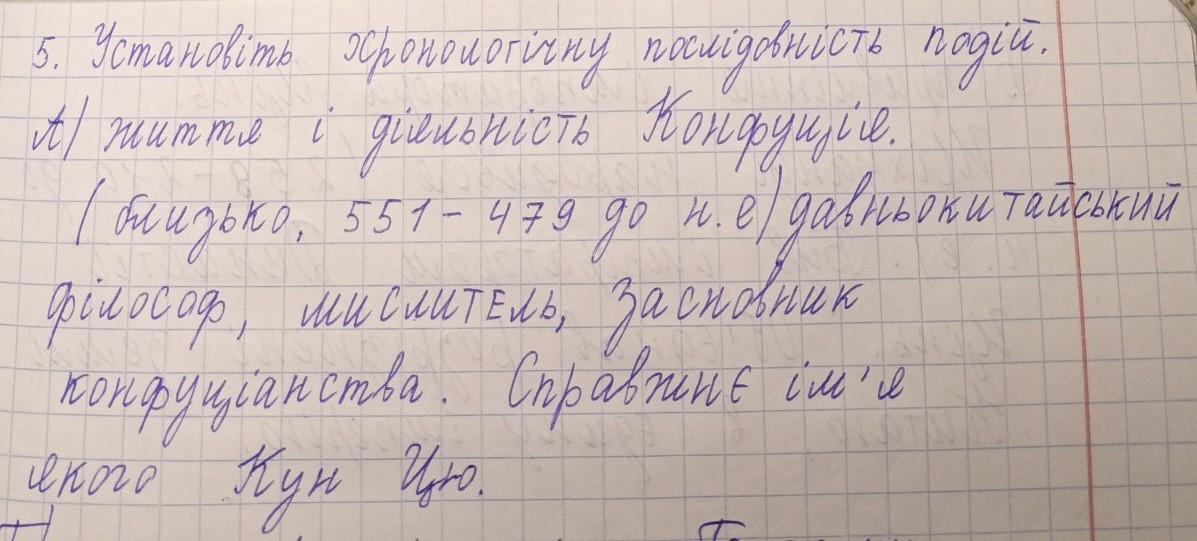 5. Установіть хронологічну послідовність подій.
А) життя і діяльність Конфуція.
(близько, 551 - 479 до н.е) давньокитайський
філософ, мислитель, засновник
конфуціанства. Справжнє ім'я
якого Кун Цю.